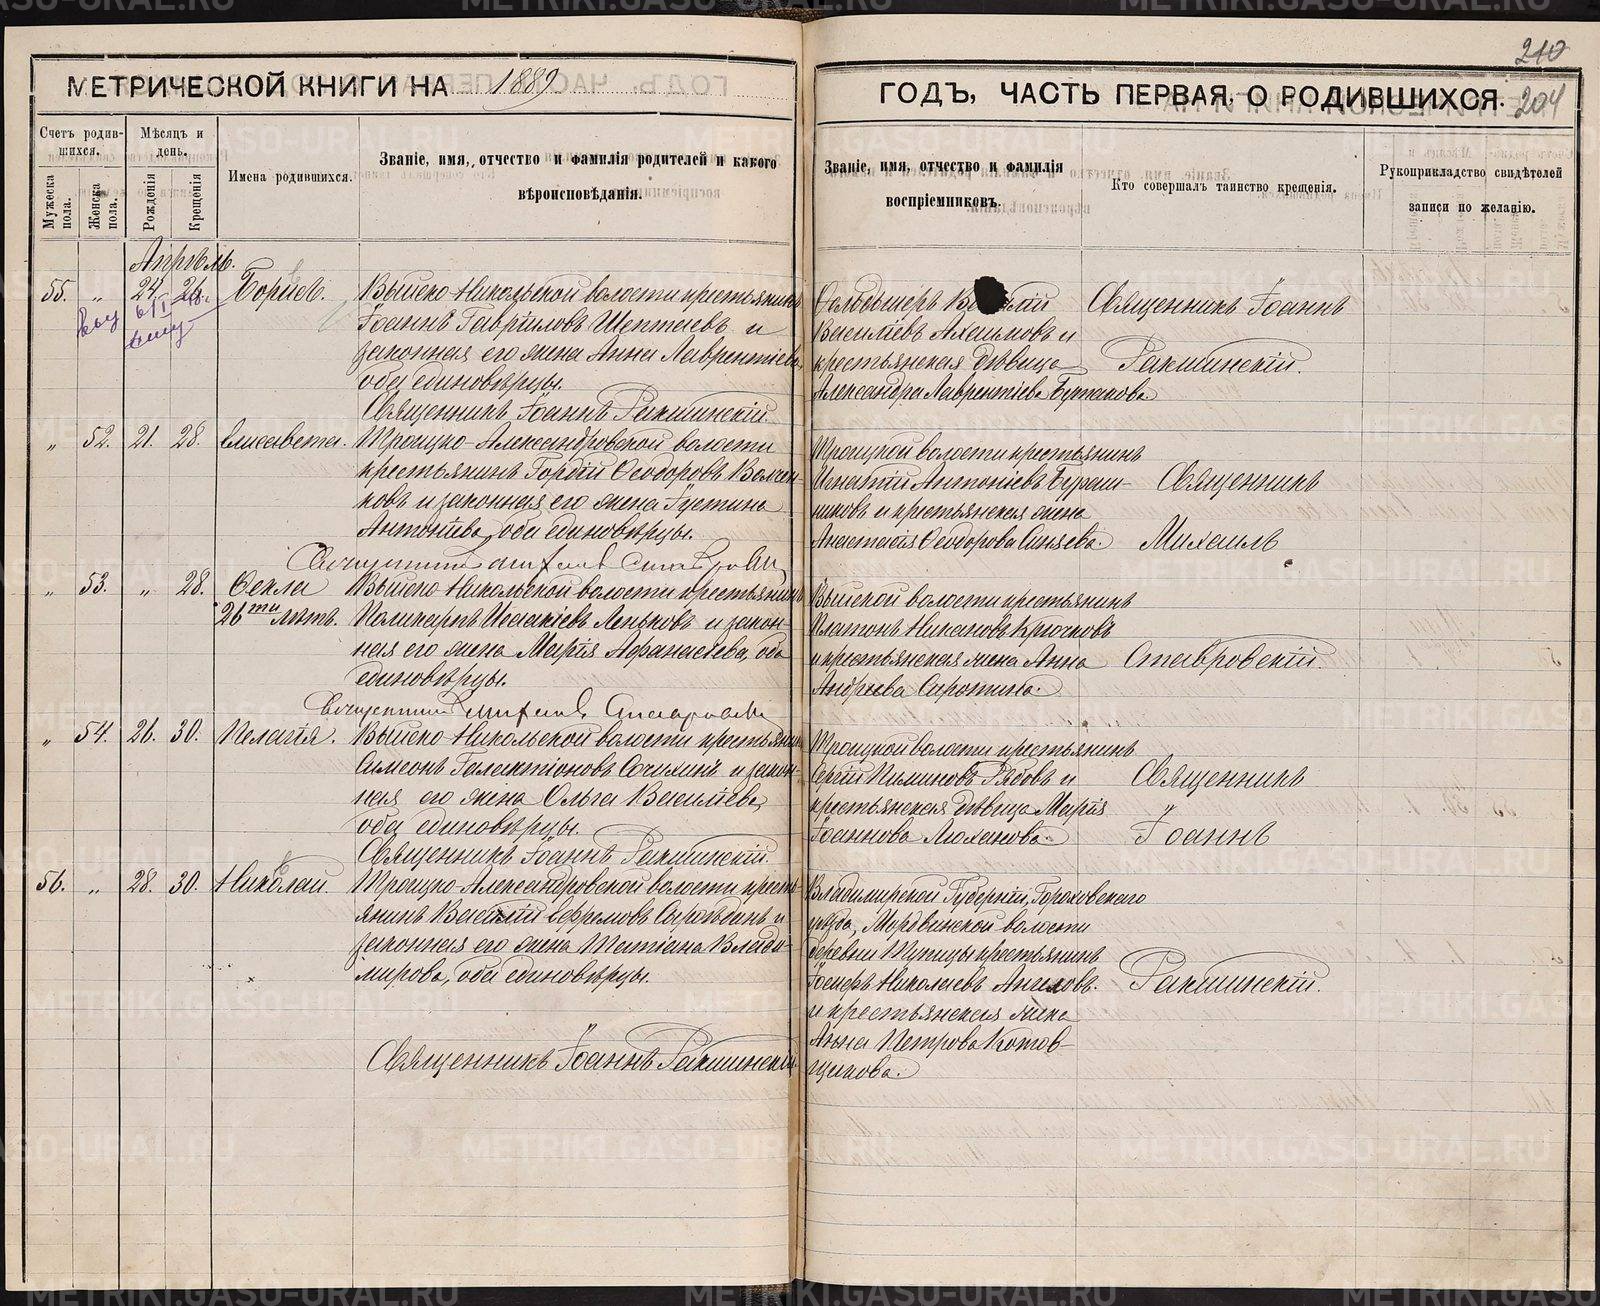 МЕТРИЧЕСКОЙ КНИГИ НА 1889
Счетъ родив-
шихся.
Мужеска
пола.
Женска
пола.
Мѣсяцъ и
день.
Рожденія
Крещенія
Имена родившихся.
Званіе, имя, отчество и фамилія родителей и какого
вѣроисповѣданія.
Апрѣль.
55. „ 24 Борисъ.
Выйско-Никольской волости крестьянинъ
Іоаннъ Гавріиловъ Шептаевъ и
законная его жена Анна Лаврентіева,
оба единовѣрцы.
Священникъ Іоаннъ Ракшинскій.
„ 52. 21. 28. Елисавета.
Троицко-Александровской волости
крестьянинъ Гордій Ѳеодоровъ Волчен-
ковъ и законная его жена Іустина
Антоніева, оба единовѣрцы.
Священникъ Михаилъ Ставровскій
„ 53. „ 28. Ѳекла
26ти лѣтъ.
Выйско-Никольской волости крестьянинъ
Поликарпъ Исаакіевъ Леньковъ и закон-
ная его жена Марія Афанасьева, оба
единовѣрцы.
Священникъ Михаилъ Ставровскій
„ 54. 26. 30. Пелагія.
Выйско-Никольской волости крестьянинъ
Симеонъ Галактіоновъ Сочихинъ и закон-
ная его жена Ольга Василіева,
оба единовѣрцы.
Священникъ Іоаннъ Ракшинскій.
56. „ 28. 30. Николай.
Троицко-Александровской волости кресть-
янинъ Василій Ефремовъ и
законная его жена Татіана Влади-
мирова, оба единовѣрцы.
Священникъ Іоаннъ Ракшинскій.
210
204
ГОДЪ, ЧАСТЬ ПЕРВАЯ, О РОДИВШИХСЯ.
Званіе, имя, отчество и фамилія
воспріемниковъ.
Кто совершалъ таинство крещенія.
Рукоприкладство свидѣтелей
записи по желанію.
Фельдшеръ
Василіевъ и
крестьянская дѣвица
Александра Лаврентіева Бутакова.
Священникъ Іоаннъ
Ракшинскій.
Троицкой волости крестьянинъ
Игнатій Антоніевъ Бураш-
никовъ и крестьянская жена
Анастасія Ѳеодорова Синяева.
Священникъ
Михаилъ
Выйской волости крестьянинъ
Платонъ Никановъ Крючковъ
и крестьянская жена Анна
Андреева Сиротина.
Ставровскій.
Троицкой волости крестьянинъ
Сергій Пиминовъ Рябовъ и
крестьянская дѣвица Марія
Іоаннова Молханова.
Священникъ
Іоаннъ
Владимирской Губерніи, Гороховскаго
уѣзда, Мордвинской волости
деревни Тупицы крестьянинъ
Іосифъ Николаевъ Ангеловъ.
и крестьянская жена
Анна Петрова Котов-
щикова.
Ракшинскій.
METRIKI.GASO-URAL.RU